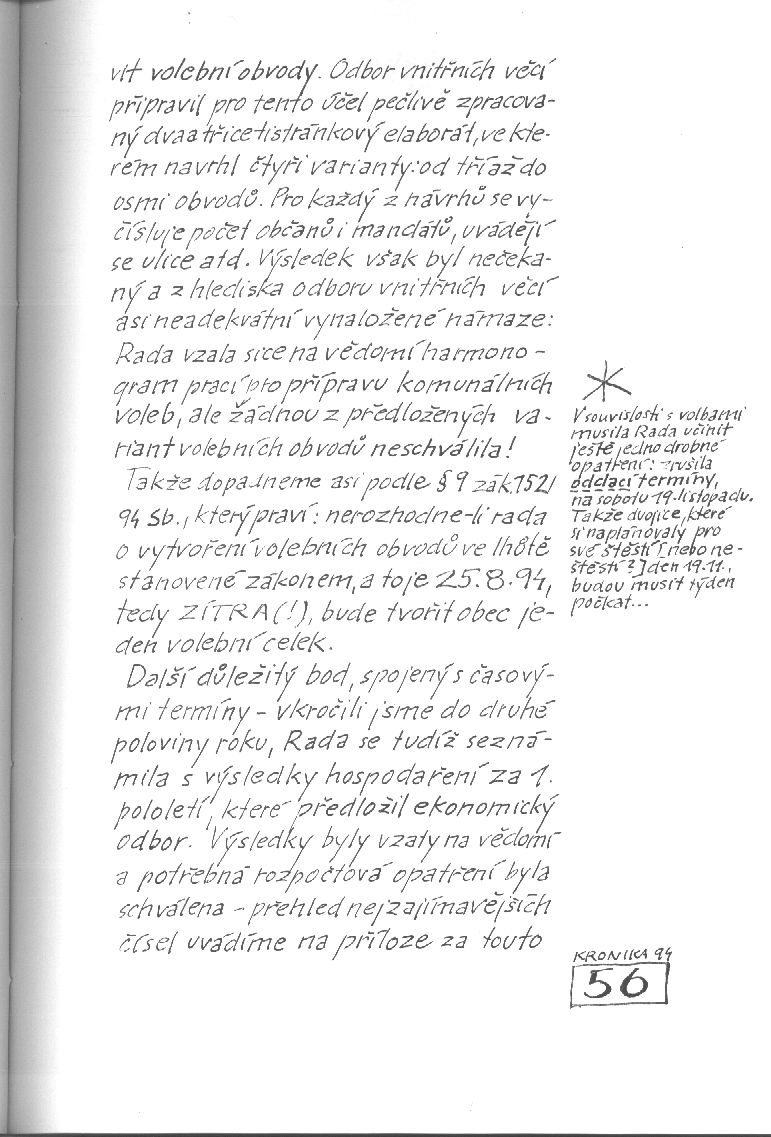 vit volební obvody. Odbor vnitřních věcí
připravil pro tento účel pečlivě zpracova-
ný dvaatřicetistránkový elaborát, ve kte-
rém navrhl čtyři varianty: od tří až do
osmi obvodů. Pro každý z návrhů se vy-
čísluje počet občanů i mandátů, uvádějí
se ulice atd. Výsledek však byl nečeka-
ný a z hlediska odboru vnitřních věcí
asi neadekvátní vynaložené námaze:
Rada vzala sice na vědomí harmono-
gram prací pro přípravu komunálních
voleb, ale žádnou z předložených va-
riant volebních obvodů neschválila!
Takže dopadneme asi podle § 9 zák. 152/
94 Sb., který praví: nerozhodne-li rada
o vytvoření volebních obvodů ve lhůtě
stanovené zákonem, a to je 25.8.94,
tedy ZÍTRA(!), bude tvořit obec je-
den volební celek.
Další důležitý bod, spojený s časový-
mi termíny - vkročili jsme do druhé
poloviny roku, Rada se tudíž sezná-
mila s výsledky hospodaření za 1.
pololetí, které předložil ekonomický
odbor. Výsledky byly vzaty na vědomí
a potřebná rozpočtová opatření byla
schválena - přehled nejzajímavějších
čísel uvádíme na příloze za touto
*
V souvislosti s volbami
musila Rada učinit
ještě jedno drobné
opatření: zrušila
oddací termíny,
na sobotu 19. listopadu.
Takže dvojice, které
si naplánovaly pro
své štěstí [nebo ne-
štěstí ?] den 19.11.,
budou musit týden
počkat...
KRONIKA 94
56